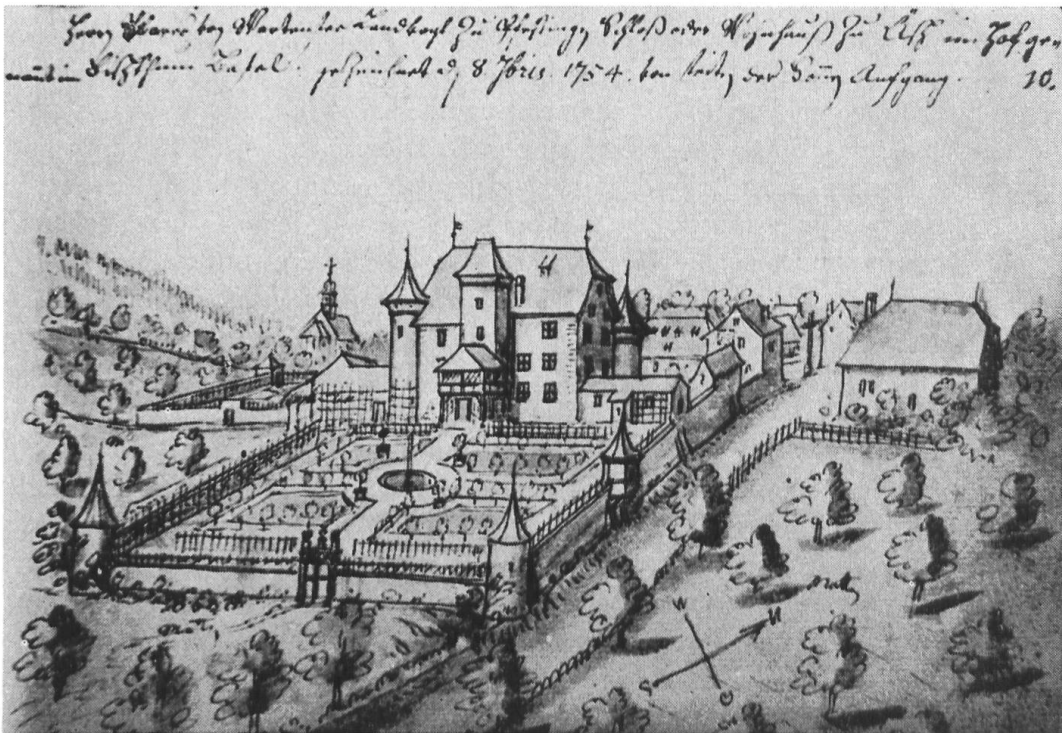 Herrn Baron von Wartensee Landvogt zu Pfeffingen Schloß oder Wohnhauß zu Äsch im Hof gen
Bisthum Basel. gezeichnet d. 8 7bris. 1754. von seiten der Sonn Aufgang. 10.
W
N
S
O